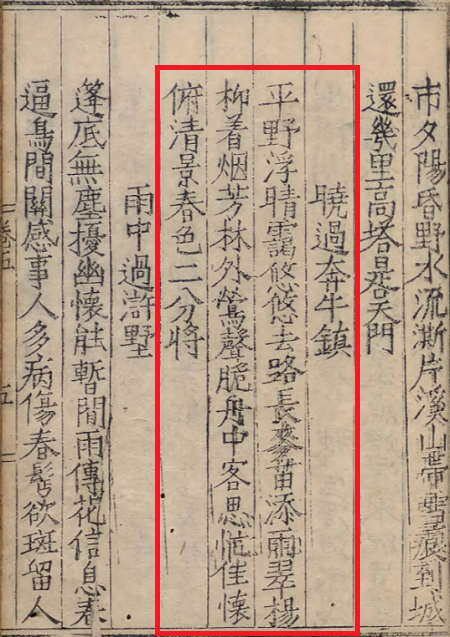 市夕陽昏野水流澌片溪山帶雪痕到城
還幾里高塔是吴門
曉過奔牛鎮
平野浮晴靄悠悠去路長麥苗添雨翠楊
柳着烟芳林外鶯聲脆舟中客思忙佳懷
俯清景春色二分將
雨中過滸墅
篷底無塵擾幽懷能暫間雨傳花信息春
逼鳥間關感事人多病傷春髩欲斑留人
卷五
五